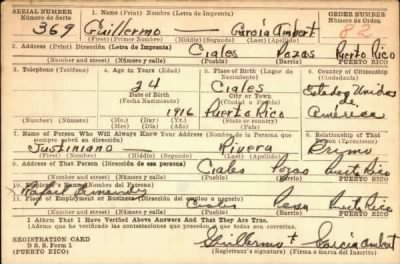 SERIAL NUMBER 1. Name (Print) Nombre (Letra de Imprenta) ORDER NUMBER
Número de Serie Número de Orden
369 Guillermo García Imbert 82
(First) (Primer Nombre) (Middle) (Segundo) (Last) (Apellido)
2. Address (Print) Dirección (Letra de Imprenta)
Ciales Pozas Puerto Rico
(Number and street) (Número y calle) (Town) (Pueblo) (Barrio) PUERTO RICO
3. Telephone (Teléfono) 4. Age in Years (Edad) 5. Place of Birth (Lugar de Nacimiento) 6. Country of Citizenship (Ciudadanía)
24 Ciales Estados Unidos
Date of Birth City or Town de
(Fecha Nacimiento) (Ciudad o Pueblo) America
1916 Puerto Rico
(Exchange) (Number) (Número) (Mo.) (Day) (Yr.) State or Country
(Mes) (Día) (Año) (Estado o País)
7. Name of Person Who Will Always Know Your Address (Nombre de la Persona que siempre sabrá su dirección) 8. Relationship of That Person (Parentesco)
Justiniano Rivera Primo
(First) (Primer Nombre) (Middle) (Segundo) (Last) (Apellido)
9. Address of That Person (Dirección de esa persona)
Ciales Pozas Puerto Rico
(Number and street) (Número y calle) (Town) (Pueblo) (Barrio) PUERTO RICO
10. Employer's Name (Nombre del Patrono)
Rafael
11. Place of Employment or Business (Dirección del empleo o negocio)
Ciales Pesa Puerto Rico
(Number and street) (Número y calle) (Town) (Pueblo) (Barrio) PUERTO RICO
I Affirm That I Have Verified Above Answers And That They Are True.
(Afirmo que he verificado las contestaciones que preceden y que son ciertas)
REGISTRATION CARD Guillermo + García Imbert
D. S. S. Form 1 Registrant's signature (Firma del Registrado)
PUERTO RICO